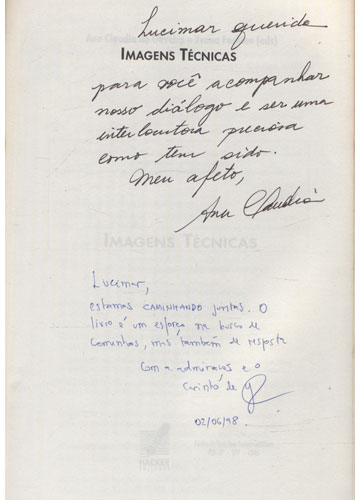 Lucimar querida
IMAGENS TÉCNICAS
para você acompanhar
nosso diálogo e ser uma
interlocutora preciosa
como tem sido.
Meu afeto,
Ana Claudia
IMAGENS TÉCNICAS
Lucimar,
estamos CAMINHANDO juntas. O
livro é um esforço na busca de
caminhos, mas também de resposta
Com a admiração e o
carinho de
02/06/98
HACKER